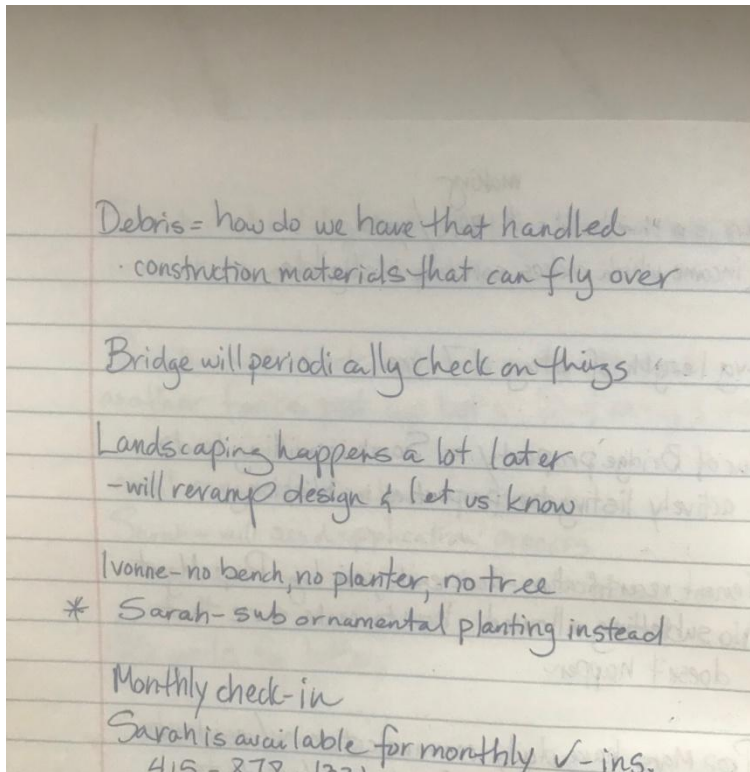 Debris = how do we have that handled
· construction materials that can fly over
Bridge will periodically check on things
Landscaping happens a lot later
- will revamp design & let us know
Ivonne - no bench, no planter, no tree
* Sarah - sub ornamental planting instead
Monthly check-in
Sarah is available for monthly ✓-ins.
415 - 878